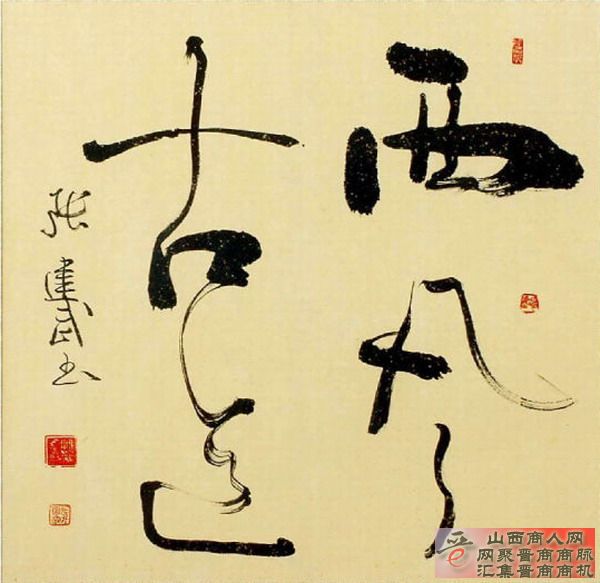 西风
古道
张建武书
山西商人网
网聚晋商商脉
汇集晋商商机